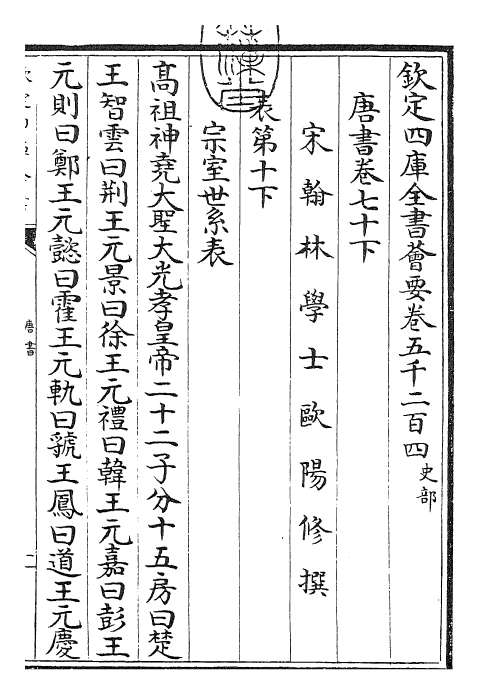 欽定四庫全書薈要卷五千二百四 史部
唐書卷七十下
宋翰林學士歐陽修撰
表第十下
宗室世系表
髙祖神堯大聖大光孝皇帝二十二子分十五房曰楚
王智雲曰荆王元景曰徐王元禮曰韓王元嘉曰彭王
元則曰鄭王元懿曰霍王元軌曰虢王鳳曰道王元慶
唐書